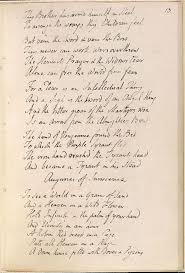 13
Thy Brother has armd himself in Steel
To avenge the wrongs thy Children feel
But vain the Sword & vain the Bow
They never can work Wars overthrow
The Hermits Prayer & the Widows tear
Alone can free the World from fear
For a Tear is an Intellectual Thing
And a Sigh is the Sword of an Angel King
And the bitter groan of the Martyrs woe
Is an Arrow from the Almighties Bow
The hand of Vengeance found the Bed
To which the Purple Tyrant fled
The iron hand crushd the Tyrants head
And became a Tyrant in his stead
Auguries of Innocence
To see a World in a Grain of Sand
And a Heaven in a Wild Flower
Hold Infinity in the palm of your hand
And Eternity in an hour
A Robin Red breast in a Cage
Puts all Heaven in a Rage
A dove house filld with doves & Pigeons